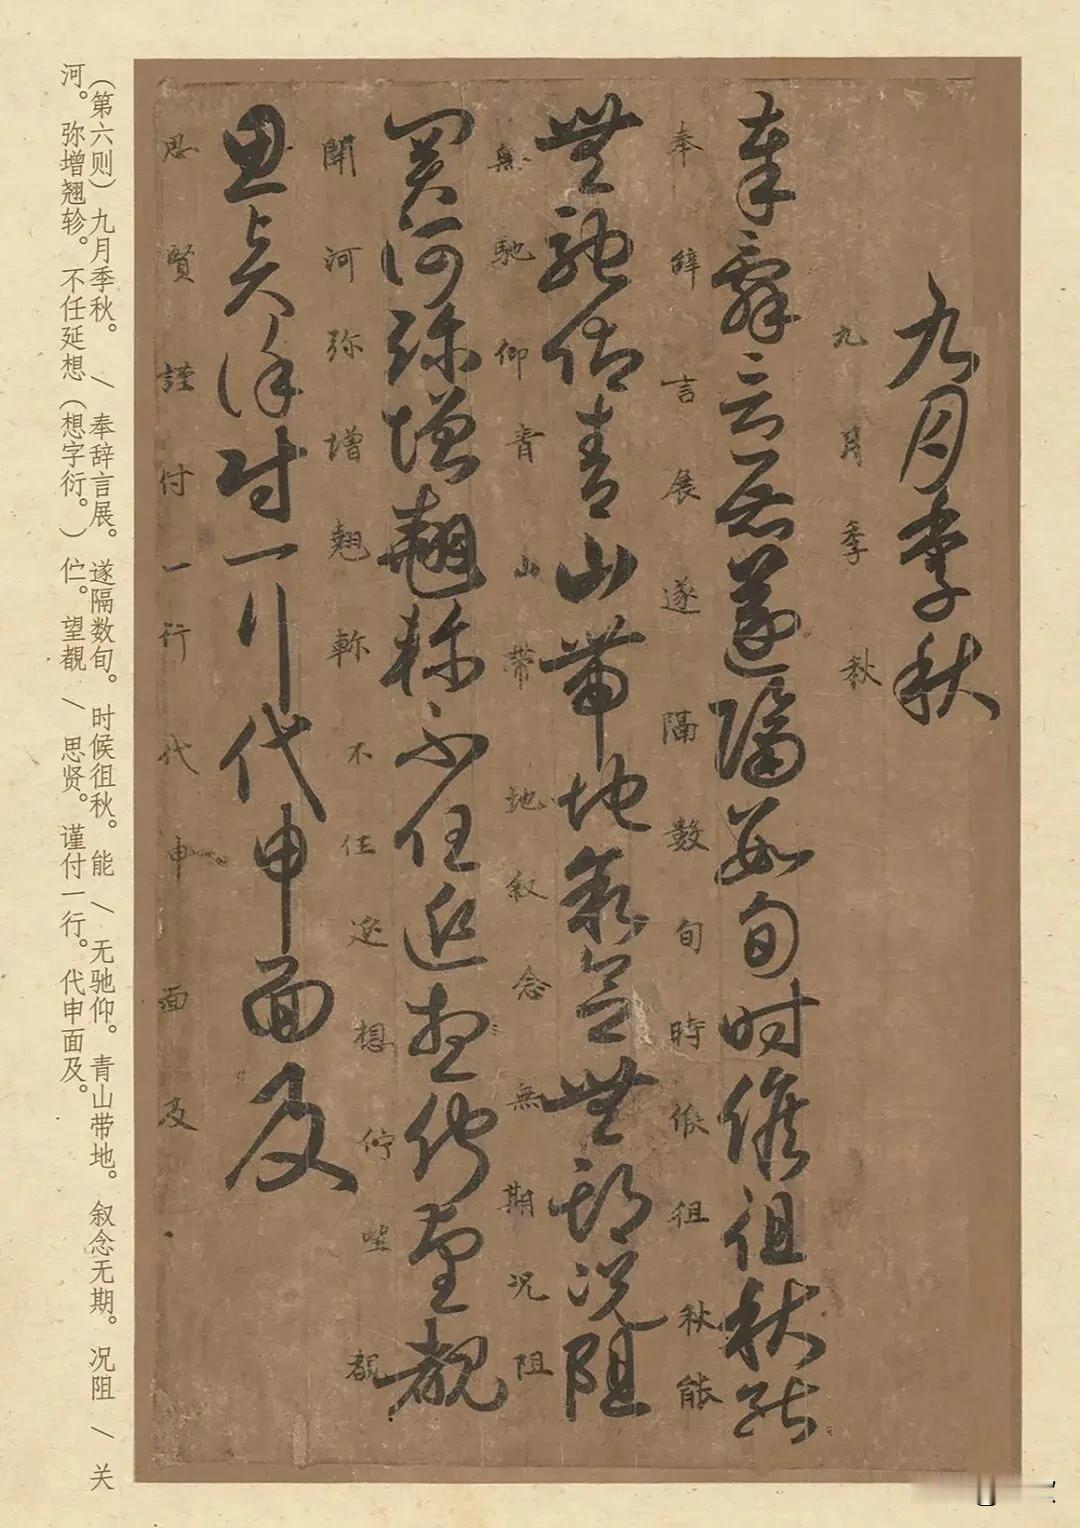 九月季秋
九月季秋
奉辭言展遂隔數旬时候徂秋能
奉辭言展遂隔數旬時候徂秋能
無馳仰青山帶地叙念無期况阻
無馳仰青山帶地叙念無期况阻
関河弥增翹軫不任延想佇望覩
開河弥增翹軫不任想佇望覩
思賢谨付一行代申面及
思賢謹付一行代申面及
（第六则）九月季秋。/ 奉辞言展。遂隔数旬。时候徂秋。能 / 无驰仰。青山带地。叙念无期。况阻 / 关
河。弥增翘轸。不任延想（想字衍。）伫。望覩 / 思贤。谨付一行。代申面及。